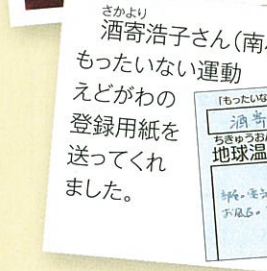 さかより
酒寄浩子さん(南
もったいない運動
えどがわの
登録用紙を
送ってくれ
ました。
「もったいな
酒寄
ちきゅうおん
地球温